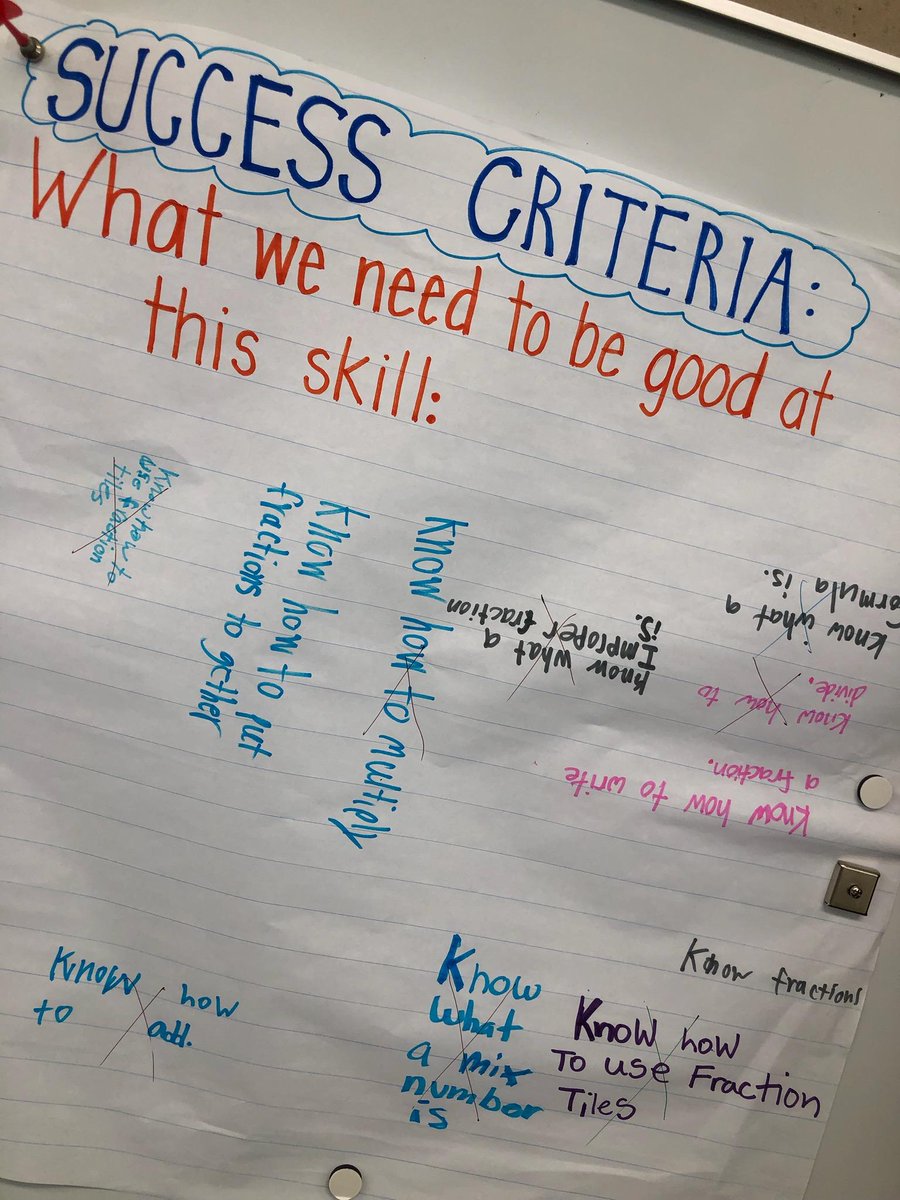 SUCCESS CRITERIA:
What we need to be good at
this skill:
Know how to
use fraction
tiles
Know how to put
fractions to gether
Know how to multiply
Know what a
Improper fraction
is.
Know what a
formula is.
Know how to
divide.
Know how to write
a fraction.
Know how
to add.
Know
what
a mix
number
is
Know fractions
Know how
To use Fraction
Tiles